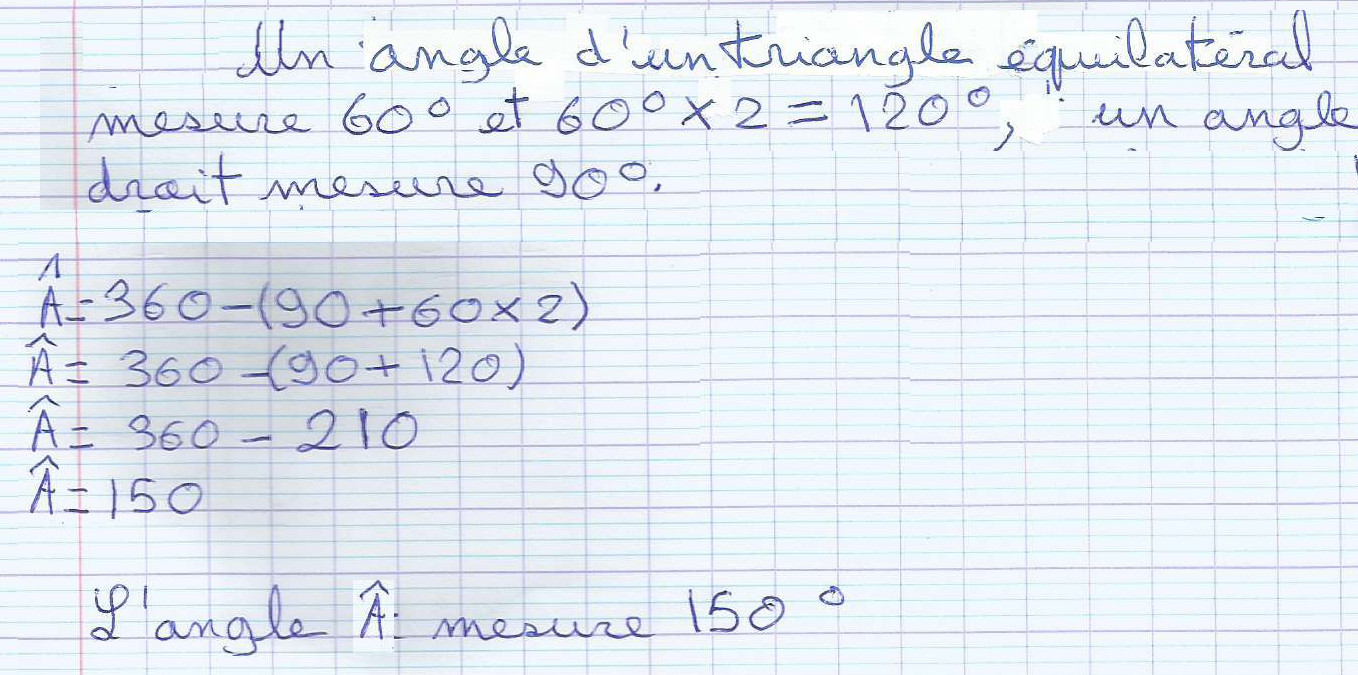 Un angle d'un triangle équilatéral
mesure 60° et 60° × 2 = 120°, un angle
droit mesure 90°.
Â = 360 - (90 + 60 × 2)
Â = 360 - (90 + 120)
Â = 360 - 210
Â = 150
L'angle Â mesure 150°